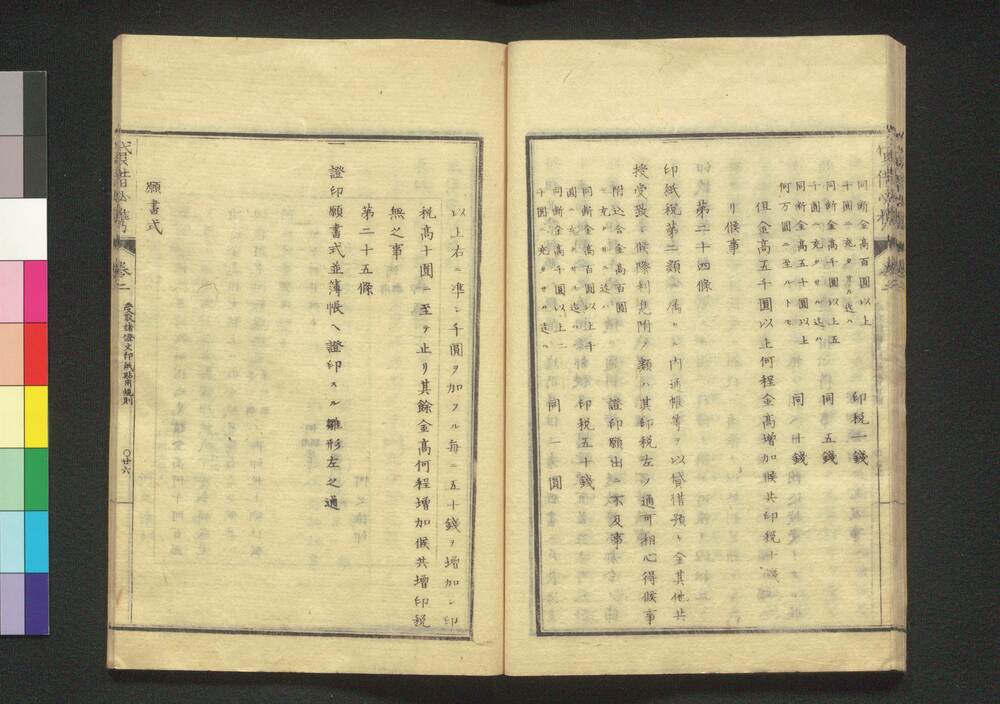 同断金高百圓以上
千圓ニ充タサル迄ハ 印税一錢
同断金高千圓以上五
千圓ニ充タサル迄ハ 同五錢
同断金高五千圓以上
何万圓ニ至ルトモ 同十錢
但金高五千圓以上何程金高増加候共印税十錢
リ候事
第二十四條
印紙税第二類ニ属シ候内通帳等ヲ以貸借預ケ金其他共
授受致シ候際判見附ノ類ハ其印税左ノ通可相心得候事
附込合金高百圓
ニ充タサル迄ハ 證印願出ニ不及事
同断金高百圓以上千
圓ニ充タサル迄ハ 印税五十錢
同断金高千圓以上二
千圓ニ充タサル迄ハ 同一圓
以上右ニ凖シ千圓ヲ加フル毎ニ五十錢ヲ増加シ印
税高十圓ニ至テ止リ其餘金高何程増加候共増印税
無之事
第二十五條
一 證印願書式並薄帳ヘ證印スル雛形左之通
願書式
卷二
受取諸證文印紙貼用規則
〇廿六